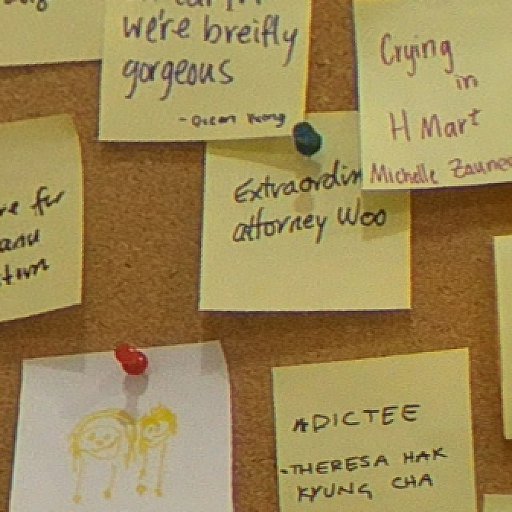 we're breifly
gorgeous
- Ocean Vuong
Crying
in
H Mart
Michelle Zauner
Extraordin
attorney Woo
re for
and
ADICTEE
-THERESA HAK
KYUNG CHA